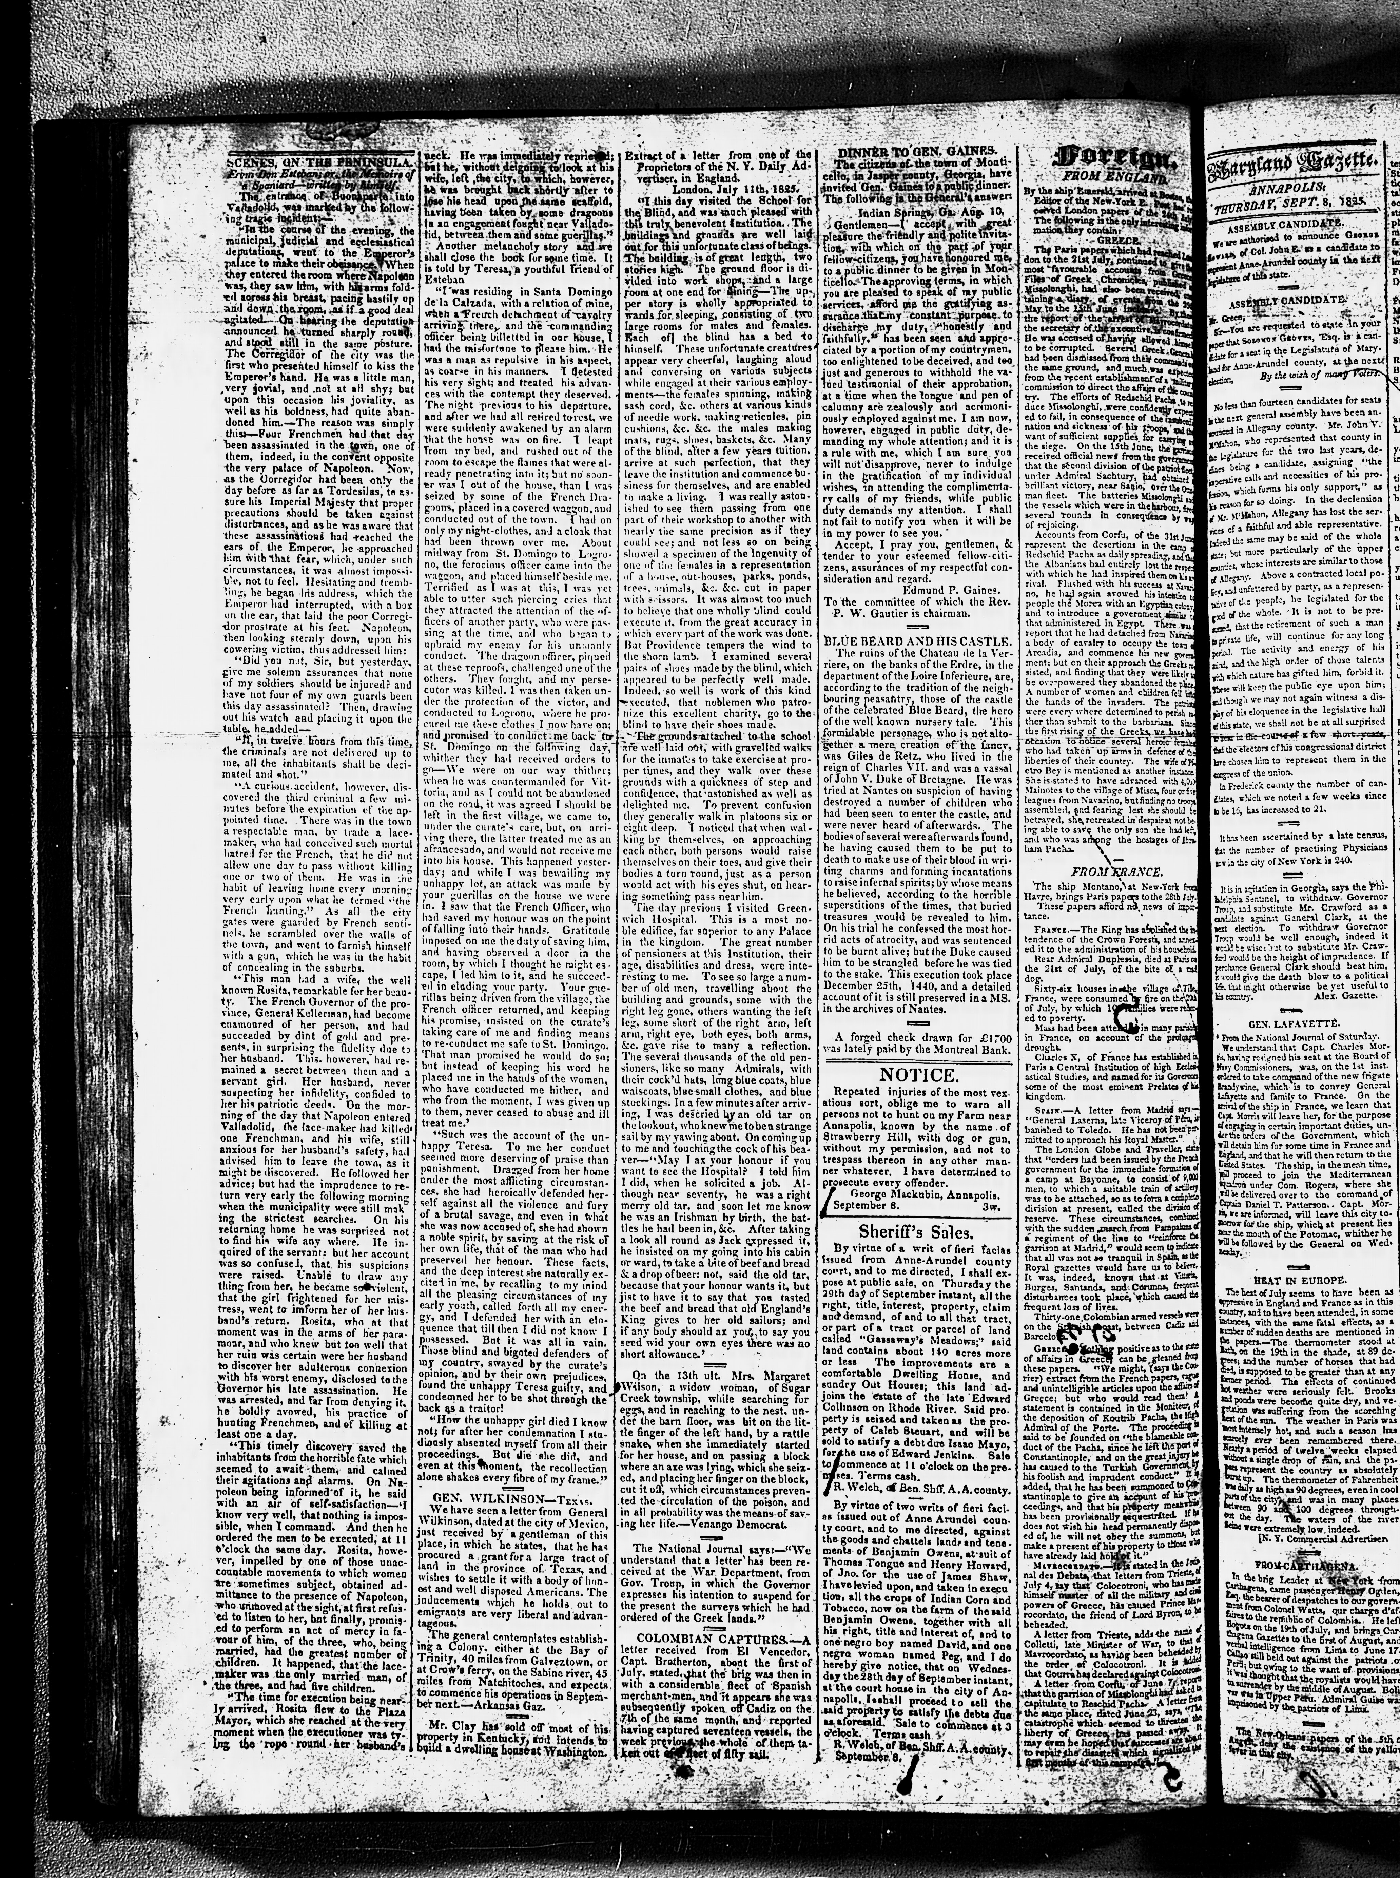 SCENES, ON THE PENINSULA.
From Don Esteban; or, the Memoirs of
a Spaniard—written by himself.
The entrance of Buonaparte into
Valladolid, was marked by the follow-
ing tragic incident:—
"In the course of the evening, the
municipal, judicial and ecclesiastical
deputations, went to the Emperor's
palace to make their obeisance. When
they entered the room where Napoleon
was, they saw him, with his arms fold-
ed across his breast, pacing hastily up
and down the room, as if a good deal
agitated. On hearing the deputation
announced he turned sharply round,
and stood still in the same posture.
The Corregidor of the city was the
first who presented himself to kiss the
Emperor's hand. He was a little man,
very jovial, and not at all shy; but
upon this occasion his joviality, as
well as his boldness, had quite aban-
doned him.—The reason was simply
this—Four Frenchmen had that day
been assassinated in the town, one of
them, indeed, in the convent opposite
the very palace of Napoleon. Now,
as the Corregidor had been only the
day before as far as Tordesilas, to as-
sure his Imperial Majesty that proper
precautions should be taken against
disturbances, and as he was aware that
these assassinations had reached the
ears of the Emperor, he approached
him with that fear, which, under such
circumstances, it was almost impossi-
ble, not to feel. Hesitating and tremb-
ling, he began his address, which the
Emperor had interrupted, with a box
on the ear, that laid the poor Corregi-
dor prostrate at his feet. Napoleon,
then looking sternly down, upon his
cowering victim, thus addressed him:
"Did you not, Sir, but yesterday,
give me solemn assurances that none
of my soldiers should be injured? and
have not four of my own guards been
this day assassinated? Then, drawing
out his watch and placing it upon the
table, he added—
"If, in twelve hours from this time,
the criminals are not delivered up to
me, all the inhabitants shall be deci-
mated and shot."
"A curious accident, however, dis-
covered the third criminal a few mi-
nutes before the expiration of the ap-
pointed time. There was in the town
a respectable man, by trade a lace-
maker, who had conceived such mortal
hatred for the French, that he did not
allow one day to pass without killing
one or two of them. He was in the
habit of leaving home every morning
very early upon what he termed "the
French hunting." As all the city
gates were guarded by French senti-
nels, he scrambled over the walls of
the town, and went to furnish himself
with a gun, which he was in the habit
of concealing in the suburbs.
"This man had a wife, the well
known Rosita, remarkable for her beau-
ty. The French Governor of the pro-
vince, General Kellerman, had become
enamoured of her person, and had
succeeded by dint of gold and pre-
sents, in surprising the fidelity due to
her husband. This, however, had re-
mained a secret between them and a
servant girl. Her husband, never
suspecting her infidelity, confided to
her his patriotic deeds. On the mor-
ning of the day that Napoleon entered
Valladolid, the lace-maker had killed
one Frenchman, and his wife, still
anxious for her husband's safety, had
advised him to leave the town, as it
might be discovered. He followed her
advice; but had the imprudence to re-
turn very early the following morning
when the municipality were still mak-
ing the strictest searches. On his
returning home he was surprised not
to find his wife any where. He in-
quired of the servant: but her account
was so confused, that his suspicions
were raised. Unable to draw any
thing from her, he became so violent,
that the girl frightened for her mis-
tress, went to inform her of her hus-
band's return. Rosita, who at that
moment was in the arms of her para-
mour, and who knew but too well that
her ruin was certain were her husband
to discover her adulterous connexion
with his worst enemy, disclosed to the
Governor his late assassination. He
was arrested, and far from denying it,
he boldly avowed, his practice of
hunting Frenchmen, and of killing at
least one a day.
"This timely discovery saved the
inhabitants from the horrible fate which
seemed to await them, and calmed
their agitations and alarms. On Na-
poleon being informed of it, he said
with an air of self-satisfaction—'I
know very well, that nothing is impos-
sible, when I command. And then he
ordered the men to be executed, at 11
o'clock the same day. Rosita, howe-
ver, impelled by one of those unac-
countable movements to which women
are sometimes subject, obtained ad-
mittance to the presence of Napoleon,
who unmoved at the sight, at first refus-
ed to listen to her, but finally, promis-
ed to perform an act of mercy in fa-
vour of him, of the three, who, being
married, had the greatest number of
children. It happened, that the lace-
maker was the only married man, of
the three, and had five children.
"The time for execution being near-
ly arrived, Rosita flew to the Plaza
Mayor, which she reached at the very
moment when the executioner was ty-
ing the rope round her husband's
neck. He was immediately reprieved;
but he, without deigning to look at his
wife, left the city, to which, however,
he was brought back shortly after to
lose his head upon the same scaffold,
having been taken by some dragoons
in an engagement fought near Vallado-
lid, between them and some guerillas."
Another melancholy story and we
shall close the book for some time. It
is told by Teresa, a youthful friend of
Esteban
"I was residing in Santa Domingo
de la Calzada, with a relation of mine,
when a French detachment of cavalry
arriving there, and the commanding
officer being billetted in our house, I
had the misfortune to please him. He
was a man as repulsive in his aspect,
as coarse in his manners. I detested
his very sight; and treated his advan-
ces with the contempt they deserved.
The night previous to his departure,
and after we had all retired to rest, we
were suddenly awakened by an alarm
that the house was on fire. I leapt
from my bed, and rushed out of the
room to escape the flames that were al-
ready penetrating into it; but no soon-
er was I out of the house, than I was
seized by some of the French Dra-
goons, placed in a covered waggon, and
conducted out of the town. I had on
only my night-clothes, and a cloak that
had been thrown over me. About
midway from St. Domingo to Logro-
no, the ferocious officer came into the
waggon, and placed himself beside me.
Terrified as I was at this, I was yet
able to utter such piercing cries that
they attracted the attention of the of-
ficers of another party, who were pas-
sing at the time, and who began to
upbraid my enemy for his unmanly
conduct. The dragoon officer, piqued
at these reproofs, challenged one of the
others. They fought, and my perse-
cutor was killed. I was then taken un-
der the protection of the victor, and
conducted to Logrono, where he pro-
cured me these clothes I now have on;
and promised to conduct me back to
St. Domingo on the following day,
whither they had received orders to
go—We were on our way thither;
when he was countermanded for Vit-
toria, and as I could not be abandoned
on the road, it was agreed I should be
left in the first village, we came to,
under the curate's care, but, on arri-
ving there, the latter treated me as an
afrancesado, and would not receive me
into his house. This happened yester-
day; and while I was bewailing my
unhappy lot, an attack was made by
your guerillas on the house we were
in. I saw that the French Officer, who
had saved my honour was on the point
of falling into their hands. Gratitude
imposed on me the duty of saving him,
and having observed a door in the
room, by which I thought he might es-
cape, I led him to it, and he succeed-
ed in eluding your party. Your gue-
rillas being driven from the village, the
French officer returned, and keeping
his promise, insisted on the curate's
taking care of me and finding means
to re-conduct me safe to St. Domingo.
That man promised he would do so;
but instead of keeping his word he
placed me in the hands of the women,
who have conducted me hither, and
who from the moment, I was given up
to them, never ceased to abuse and ill
treat me.'
"Such was the account of the un-
happy Teresa. To me her conduct
seemed more deserving of praise than
punishment. Dragged from her home
under the most afflicting circumstan-
ces, she had heroically defended her-
self against all the violence and fury
of a brutal savage, and even in what
she was now accused of, she had shown
a noble spirit, by saving at the risk of
her own life, that of the man who had
preserved her honour. These facts,
and the deep interest she naturally ex-
cited in me, by recalling to my mind
all the pleasing circumstances of my
early youth, called forth all my ener-
gy, and I defended her with an elo-
quence that till then I did not know I
possessed. But it was all in vain.
Those blind and bigoted defenders of
my country, swayed by the curate's
opinion, and by their own prejudices,
found the unhappy Teresa guilty, and
condemned her to be shot through the
back as a traitor!
"How the unhappy girl died I know
not; for after her condemnation I stu-
diously absented myself from all their
proceedings. But die she did, and
even at this moment, the recollection
alone shakes every fibre of my frame."
GEN. WILKINSON—TEXAS.
We have seen a letter from General
Wilkinson, dated at the city of Mexico,
just received by a gentleman of this
place, in which he states, that he has
procured a grant for a large tract of
land in the province of Texas, and
wishes to settle it with a body of hon-
est and well disposed Americans. The
inducements which he holds out to
emigrants are very liberal and advan-
tageous.
The general contemplates establish-
ing a Colony, either at the Bay of
Trinity, 40 miles from Galveztown, or
at Crow's ferry, on the Sabine river, 45
miles from Natchitoches, and expects
to commence his operations in Septem-
ber next.—Arkansas Gaz.
Mr. Clay has sold off most of his
property in Kentucky, and intends to
build a dwelling house at Washington.
Extract of a letter from one of the
Proprietors of the N. Y. Daily Ad-
vertiser, in England.
London, July 11th, 1825.
"I this day visited the School for
the Blind, and was much pleased with
this truly benevolent Institution. The
buildings and grounds are well laid
out for this unfortunate class of beings.
The building is of great length, two
stories high. The ground floor is di-
vided into work shops, and a large
room at one end for dining—The up-
per story is wholly appropriated to
wards for sleeping, consisting of two
large rooms for males and females.
Each of the blind has a bed to
himself. These unfortunate creatures
appear very cheerful, laughing aloud
and conversing on various subjects
while engaged at their various employ-
ments—the females spinning, making
sash cord, &c. others at various kinds
of needle work, making reticules, pin
cushions, &c. &c. the males making
mats, rugs, shoes, baskets, &c. Many
of the blind, after a few years tuition,
arrive at such perfection, that they
leave the institution and commence bu-
siness for themselves, and are enabled
to make a living. I was really aston-
ished to see them passing from one
part of their workshop to another with
nearly the same precision as if they
could see; and not less so on being
showed a specimen of the ingenuity of
one of the females in a representation
of a house, out-houses, parks, ponds,
trees, animals, &c. &c. cut in paper
with scissors. It was almost too much
to believe that one wholly blind could
execute it, from the great accuracy in
which every part of the work was done.
But Providence tempers the wind to
the shorn lamb. I examined several
pairs of shoes made by the blind, which
appeared to be perfectly well made.
Indeed, so well is work of this kind
executed, that noblemen who patro-
nize this excellent charity, go to the
blind to have their shoes made.
The grounds attached to the school
are well laid out, with gravelled walks
for the inmates to take exercise at pro-
per times, and they walk over these
grounds with a quickness of step and
confidence, that astonished as well as
delighted me. To prevent confusion
they generally walk in platoons six or
eight deep. I noticed that when wal-
king by themselves, on approaching
each other, both persons would raise
themselves on their toes, and give their
bodies a turn round, just as a person
would act with his eyes shut, on hear-
ing something pass near him.
The day previous I visited Green-
wich Hospital. This is a most no-
ble edifice, far superior to any Palace
in the kingdom. The great number
of pensioners at this Institution, their
age, disabilities and dress, were inte-
resting to me. To see so large a num-
ber of old men, travelling about the
building and grounds, some with the
right leg gone, others wanting the left
leg, some short of the right arm, left
arm, right eye, both eyes, both arms,
&c. gave rise to many a reflection.
The several thousands of the old pen-
sioners, like so many Admirals, with
their cock'd hats, long blue coats, blue
waiscoats, blue small clothes, and blue
stockings. In a few minutes after arriv-
ing, I was descried by an old tar on
the lookout, who knew me to be a strange
sail by my yawing about. On coming up
to me and touching the cock of his bea-
ver—"May I ax your honour if you
want to see the Hospital? I told him
I did, when he solicited a job. Al-
though near seventy, he was a right
merry old tar, and soon let me know
he was an Irishman by birth, the bat-
tles he had been in, &c. After taking
a look all round as Jack expressed it,
he insisted on my going into his cabin
or ward, to take a bite of beef and bread
& a drop of beer: not, said the old tar,
because that your honour wants it, but
jist to have it to say that you tasted
the beef and bread that old England's
King gives to her old sailors; and
if any body should ax you, to say you
seed wid your own eyes there was no
short allowance."
On the 13th ult. Mrs. Margaret
Wilson, a widow woman, of Sugar
Creek township, while searching for
eggs, and in reaching to the nest, un-
der the barn floor, was bit on the lit-
tle finger of the left hand, by a rattle
snake, when she immediately started
for her house, and on passing a block
where an axe was lying, which she seiz-
ed, and placing her finger on the block,
cut it off, which circumstances preven-
ted the circulation of the poison, and
in all probability was the means of sav-
ing her life.—Venango Democrat.
The National Journal says:—"We
understand that a letter has been re-
ceived at the War Department, from
Gov. Troup, in which the Governor
expresses his intention to suspend for
the present the surveys which he had
ordered of the Creek lands."
COLOMBIAN CAPTURES.—A
letter received from El Vencedor,
Capt. Bratherton, about the first of
July, stated, that the brig was then in
with a considerable fleet of Spanish
merchant-men, and it appears she was
subsequently spoken off Cadiz on the
7th of the same month, and reported
having captured seventeen vessels, the
week previous, the whole of them ta-
ken out of a fleet of fifty sail.
DINNER TO GEN. GAINES.
The citizens of the town of Monti-
cello, in Jasper county, Georgia, have
invited Gen. Gaines to a public dinner.
The following is the General's answer
Indian Springs, Ga. Aug. 10,
Gentlemen—I accept, with great
pleasure the friendly and polite invita-
tion, with which on the part of your
fellow-citizens, you have honoured me,
to a public dinner to be given in Mon-
ticello. The approving terms, in which
you are pleased to speak of my public
services, afford me the gratifying as-
surance that my constant purpose to
discharge my duty, "honestly and
faithfully," has been seen and appre-
ciated by a portion of my countrymen,
too enlightened to be deceived, and too
just and generous to withhold the va-
lued testimonial of their approbation,
at a time when the tongue and pen of
calumny are zealously and acrimoni-
ously employed against me. I am now,
however, engaged in public duty, de-
manding my whole attention; and it is
a rule with me, which I am sure you
will not disapprove, never to indulge
in the gratification of my individual
wishes, in attending the complimenta-
ry calls of my friends, while public
duty demands my attention. I shall
not fail to notify you when it will be
in my power to see you.
Accept, I pray you, gentlemen, &
tender to your esteemed fellow-citi-
zens, assurances of my respectful con-
sideration and regard.
Edmund P. Gaines.
To the committee of which the Rev.
P. W. Gautier is chairman.
BLUE BEARD AND HIS CASTLE.
The ruins of the Chateau de la Ver-
riere, on the banks of the Erdre, in the
department of the Loire Inferieure, are,
according to the tradition of the neigh-
bouring peasantry, those of the castle
of the celebrated Blue Beard, the hero
of the well known nursery tale. This
formidable personage, who is not alto-
gether a mere creation of the fancy,
was Giles de Retz, who lived in the
reign of Charles VII. and was a vassal
of John V. Duke of Bretagne. He was
tried at Nantes on suspicion of having
destroyed a number of children who
had been seen to enter the castle, and
were never heard of afterwards. The
bodies of several were afterwards found,
he having caused them to be put to
death to make use of their blood in wri-
ting charms and forming incantations
to raise infernal spirits; by whose means
he believed, according to the horrible
superstitions of the times, that buried
treasures would be revealed to him.
On his trial he confessed the most hor-
rid acts of atrocity, and was sentenced
to be burnt alive; but the Duke caused
him to be strangled before he was tied
to the stake. This execution took place
December 25th, 1440, and a detailed
account of it is still preserved in a MS.
in the archives of Nantes.
A forged check drawn for £1700
was lately paid by the Montreal Bank.
NOTICE.
Repeated injuries of the most vex-
atious sort, oblige me to warn all
persons not to hunt on my Farm near
Annapolis, known by the name of
Strawberry Hill, with dog or gun,
without my permission, and not to
trespass thereon in any other man-
ner whatever. I have determined to
prosecute every offender.
George Mackubin, Annapolis.
September 8. 3w.
Sheriff's Sales.
By virtue of a writ of fieri facias
issued from Anne-Arundel county
court, and to me directed, I shall ex-
pose at public sale, on Thursday the
29th day of September instant, all the
right, title, interest, property, claim
and demand, of and to all that tract,
or part of a tract or parcel of land
called "Gassaway's Meadows;" said
land contains about 140 acres more
or less The improvements are a
comfortable Dwelling House, and
sundry Out Houses; this land ad-
joins the estate of the late Edward
Collinson on Rhode River. Said pro-
perty is seized and taken as the pro-
perty of Caleb Steuart, and will be
sold to satisfy a debt due Isaac Mayo,
for the use of Edward Jenkins. Sale
to commence at 11 o'clock on the pre-
mises. Terms cash.
R. Welch, of Ben. Shff. A. A. county.
By virtue of two writs of fieri faci-
as issued out of Anne Arundel coun-
ty court, and to me directed, against
the goods and chattels lands and tene-
ments of Benjamin Owens, at suit of
Thomas Tongue and Henry Howard,
of Jno. for the use of James Shaw,
I have levied upon, and taken in execu-
tion, all the crops of Indian Corn and
Tobacco, now on the farm of the said
Benjamin Owens, together with all
his right, title and interest of, and to
one negro boy named David, and one
negro woman named Peg, and I do
hereby give notice, that on Wednes-
day the 28th day of September instant,
at the court house in the city of An-
napolis, I shall proceed to sell the
said property to satisfy the debts due
as aforesaid. Sale to commence at 3
o'clock. Terms cash
R. Welch, of Ben. Shff. A. A. county.
September 8.
Foreign.
FROM ENGLAND.
By the ship Emerald, arrived at
Editor of the New-York
ceived London papers of the
The following is the only interesting
mation they contain:
GREECE.
The Paris papers which had reached
don to the 21st July, continued
most favourable accounts from
Files of Greek Chronicles,
taining a diary of events from
May to the 15th June
the report of the arrest of
the secretary of the executive,
He was accused of having allowed
to be corrupted. Several Greek
had been dismissed from their
the same ground, and much was
from the recent establishment of a military
commission to direct the affairs of the
try. The efforts of Redschid Pacha to re-
duce Missolonghi, were confidently expect-
ed to fail, in consequence of the
nation and sickness of his troops, and
want of sufficient supplies for carrying on
the siege. On the 15th June, the
received official news from the
that the second division of the patriot fleet
under Admiral Sachtury, had obtained a
brilliant victory, near Sapio, over the Otto-
man fleet. The batteries Missolonghi and
the vessels which were in the harbour, fired
several rounds in consequence by way
of rejoicing.
Accounts from Corfu, of the 31st June
represent the desertions in the camp of
Redschid Pacha as daily spreading, and that
the Albanians had entirely lost the respect
with which he had inspired them on his ar-
rival. Flushed with his success at Nava-
no, he had again avowed his intention to
people the Morea with an Egyptian colony,
and to introduce a government similar to
that administered in Egypt. There was a
report that he had detached from Navarino
a body of cavalry to occupy the town of
Arcadia, and commence his new govern-
ment; but on their approach the Greeks re-
sisted, and finding that they were likely to
be overpowered they abandoned the place.
A number of women and children fell into
the hands of the invaders. The patriots
were every where determined to perish ra-
ther than submit to the barbarians. Since
the first rising of the Greeks, we have had
occasion to notice several heroic females
who had taken up arms in defence of the
liberties of their country. The wife of Pi-
etro Bey is mentioned as another instance.
She is stated to have advanced with 4,000
Mainotes to the village of Misea, four or five
leagues from Navarino, but finding no troops
assembled, and fearing lest she should be
betrayed, she retreated in despair at not be-
ing able to save the only son she had left,
and who was among the hostages of Ibra-
ham Pacha.
FROM FRANCE.
The ship Montano, at New-York from
Havre, brings Paris papers to the 28th July.
These papers afford no news of impor-
tance.
FRANCE.—The King has abolished the in-
tendence of the Crown Forests, and annex-
ed it to the administration of his household.
Rear Admiral Duplessis, died at Paris on
the 21st of July, of the bite of a mad
dog.
Sixty-six houses in the village of
France, were consumed by fire on the
of July, by which 19 families were reduc-
ed to poverty.
Mass had been attended in many parishes
in France, on account of the protracted
drought.
Charles X, of France has established in
Paris a Central Institution of high Eccles-
iastical Studies, and named for its Governors
some of the most eminent Prelates of his
kingdom.
SPAIN.—A letter from Madrid says—
"General Laserna, late Viceroy of Peru, is
banished to Toledo. He has not been per-
mitted to approach his Royal Master."
The London Globe and Traveller, states
that "orders had been issued by the French
government for the immediate formation of
a camp at Bayonne, to consist of 9,000
men, to which a suitable train of artillery
was to be attached, so as to form a complete
division at present, called the division of
reserve. These circumstances, combined
with the sudden march from Pampeluna of
a regiment of the line to "reinforce the
garrison at Madrid," would seem to indicate
that all was not so tranquil in Spain, as the
Royal gazettes would have us to believe.
It was, indeed, known that at Vittoria,
Burgos, Santanda, and Corunna, frequent
disturbances took place, which caused the
frequent loss of lives.
Thirty-one Colombian armed vessels were
on the Spanish coast, between Cadiz and
Barcelona.
GREECE. Nothing positive as to the state
of affairs in Greece can be gleaned from
these papers. "We might, (says the Cou-
rier) extract from the French papers, vague
and unintelligible articles upon the affairs of
Greece; but who would read them? A
statement is contained in the Moniteur, of
the deposition of Koutrib Pacha, the High
Admiral of the Porte. The proceeding is
said to be founded on "the blamable con-
duct of the Pacha, since he left the port of
Constantinople, and on the great injury he
has caused to the Turkish Government by
his foolish and imprudent conduct." It is
added, that he has been summoned to Con-
stantinople to give an account of his pro-
ceedings, and that his property meanwhile
has been provisionally sequestrated. If he
does not wish his head permanently dispos-
ed of, he will not obey the summons, but
make a present of his property to those who
have already laid hold of it."
MAVROCORDATO.—It is stated in the Jour-
nal des Debats, that letters from Trieste, of
July 4, say that Colocotroni, who has made
himself master of all the military and civil
powers of Greece, has caused Prince Mav-
rocordato, the friend of Lord Byron, to be
beheaded.
A letter from Trieste, adds the name of
Colletti, late Minister of War, to that of
Mavrocordato, as having been beheaded by
the order of Colocotroni. It is added
that Goura has declared against Colocotroni.
A letter from Corfu, of June 17, reports
that the garrison of Missolonghi had asked to
capitulate to Reschid Pacha. A letter from
the same place, dated June 23, says, "The
catastrophe which seemed to threaten the
liberty of Greece, has passed away. It
may even be hoped that successes are about
to repair the disasters which signalised the
first months of this campaign."
Maryland Gazette.
ANNAPOLIS;
THURSDAY, SEPT. 8, 1825.
ASSEMBLY CANDIDATE.
We are authorised to announce GEORGE
of Col. John E. as a candidate to
represent Anne-Arundel county in the next
legislature of this state.
ASSEMBLY CANDIDATE.
Mr. Green,
Sir—You are requested to state in your
paper that Esq. is a can-
didate for a seat in the Legislature of Mary-
land for Anne-Arundel county, at the next
election. By the wish of many Voters.
No less than fourteen candidates for seats
in the next general assembly have been an-
nounced in Allegany county. Mr. John V.
McMahon, who represented that county in
the legislature for the two last years, de-
clines being a candidate, assigning "the
imperative calls and necessities of his pro-
fession, which forms his only support," as
his reason for so doing. In the declension
of Mr. McMahon, Allegany has lost the ser-
vices of a faithful and able representative.
Indeed the same may be said of the whole
state; but more particularly of the upper
counties, whose interests are similar to those
of Allegany. Above a contracted local po-
licy, and unfettered by party, as a represen-
tative of the people, he legislated for the
good of the whole. It is not to be pre-
sumed, that the retirement of such a man
to private life, will continue for any long
period. The activity and energy of his
mind, and the high order of those talents
with which nature has gifted him, forbid it.
These will keep the public eye upon him;
and though we may not again witness a dis-
play of his eloquence in the legislative hall
of this state, we shall not be at all surprised
when in the course of a few short years,
that the electors of his congressional district
have chosen him to represent them in the
congress of the union.
In Frederick county the number of can-
didates, which we noted a few weeks since
to be 16, has increased to 21.
It has been ascertained by a late census,
that the number of practising Physicians
now in the city of New York is 240.
It is in agitation in Georgia, says the Phi-
ladelphia Sentinel, to withdraw Governor
Troup, and substitute Mr. Crawford as a
candidate against General Clark, at the
next election. To withdraw Governor
Troup would be well enough, indeed it
would be wise: but to substitute Mr. Craw-
ford would be the height of imprudence. If
perchance General Clark should beat him,
it would give the death blow to a political
life, that might otherwise be yet useful to
his country. Alex. Gazette.
GEN. LAFAYETTE.
From the National Journal of Saturday.
We understand that Capt. Charles Mor-
ris, having resigned his seat at the Board of
Navy Commissioners, was, on the 1st inst.
ordered to take command of the new frigate
Brandywine, which is to convey General
Lafayette and family to France. On the
arrival of the ship in France, we learn that
Capt. Morris will leave her, for the purpose
of engaging in certain important duties, un-
der the orders of the Government, which
will detain him for some time in France and
England, and that he will then return to the
United States. The ship, in the mean time,
will proceed to join the Mediterranean
squadron under Com. Rogers, where she
will be delivered over to the command of
Captain Daniel T. Patterson. Capt. Mor-
ris, we are informed, will leave this city to-
morrow for the ship, which at present lies
near the mouth of the Potomac, whither he
will be followed by the General on Wed-
nesday.
HEAT IN EUROPE.
The heat of July seems to have been as
oppressive in England and France as in this
country, and to have been attended, in some
instances, with the same fatal effects, as a
number of sudden deaths are mentioned in
the papers.—The thermometer stood at
Bath, on the 19th in the shade, at 89 de-
grees; and the number of horses that had
died, is supposed to be greater than at any
former period. The effects of continued
hot weather were seriously felt. Brooks
and ponds were become quite dry, and ve-
getation was suffering from the scorching
heat of the sun. The weather in Paris was
most intensely hot, and such a season has
scarcely ever been remembered there.
Nearly a period of twelve weeks elapsed
without a single drop of rain, and the pa-
pers represent the country as absolutely
burnt up. The thermometer of Fahrenheit
was daily as high as 90 degrees, even in cool
parts of the city, and was in many places
between 90 and 100 degrees through-
out the day. The waters of the river
Seine were extremely low, indeed.
[N. Y. Commercial Advertiser.
FROM CARTHAGENA.
In the brig Leader at New York from
Carthagena, came passenger Henry Ogden,
Esq. the bearer of despatches to our govern-
ment from Colonel Watts, our charge d'af-
faires to the republic of Colombia. He left
Bogota on the 19th of July, and brings Car-
thagena Gazettes to the first of August, and
verbal intelligence from Lima to June 17.
Callao still held out against the patriots of
Peru; but owing to the want of provisions,
it was thought that the royalists would have
to surrender by the middle of August. Boli-
var was in Upper Peru. Admiral Guise was
imprisoned by the patriots of Lima.
The New-Orleans papers of the 5th of
August, deny the existence of the yellow
fever in that city.